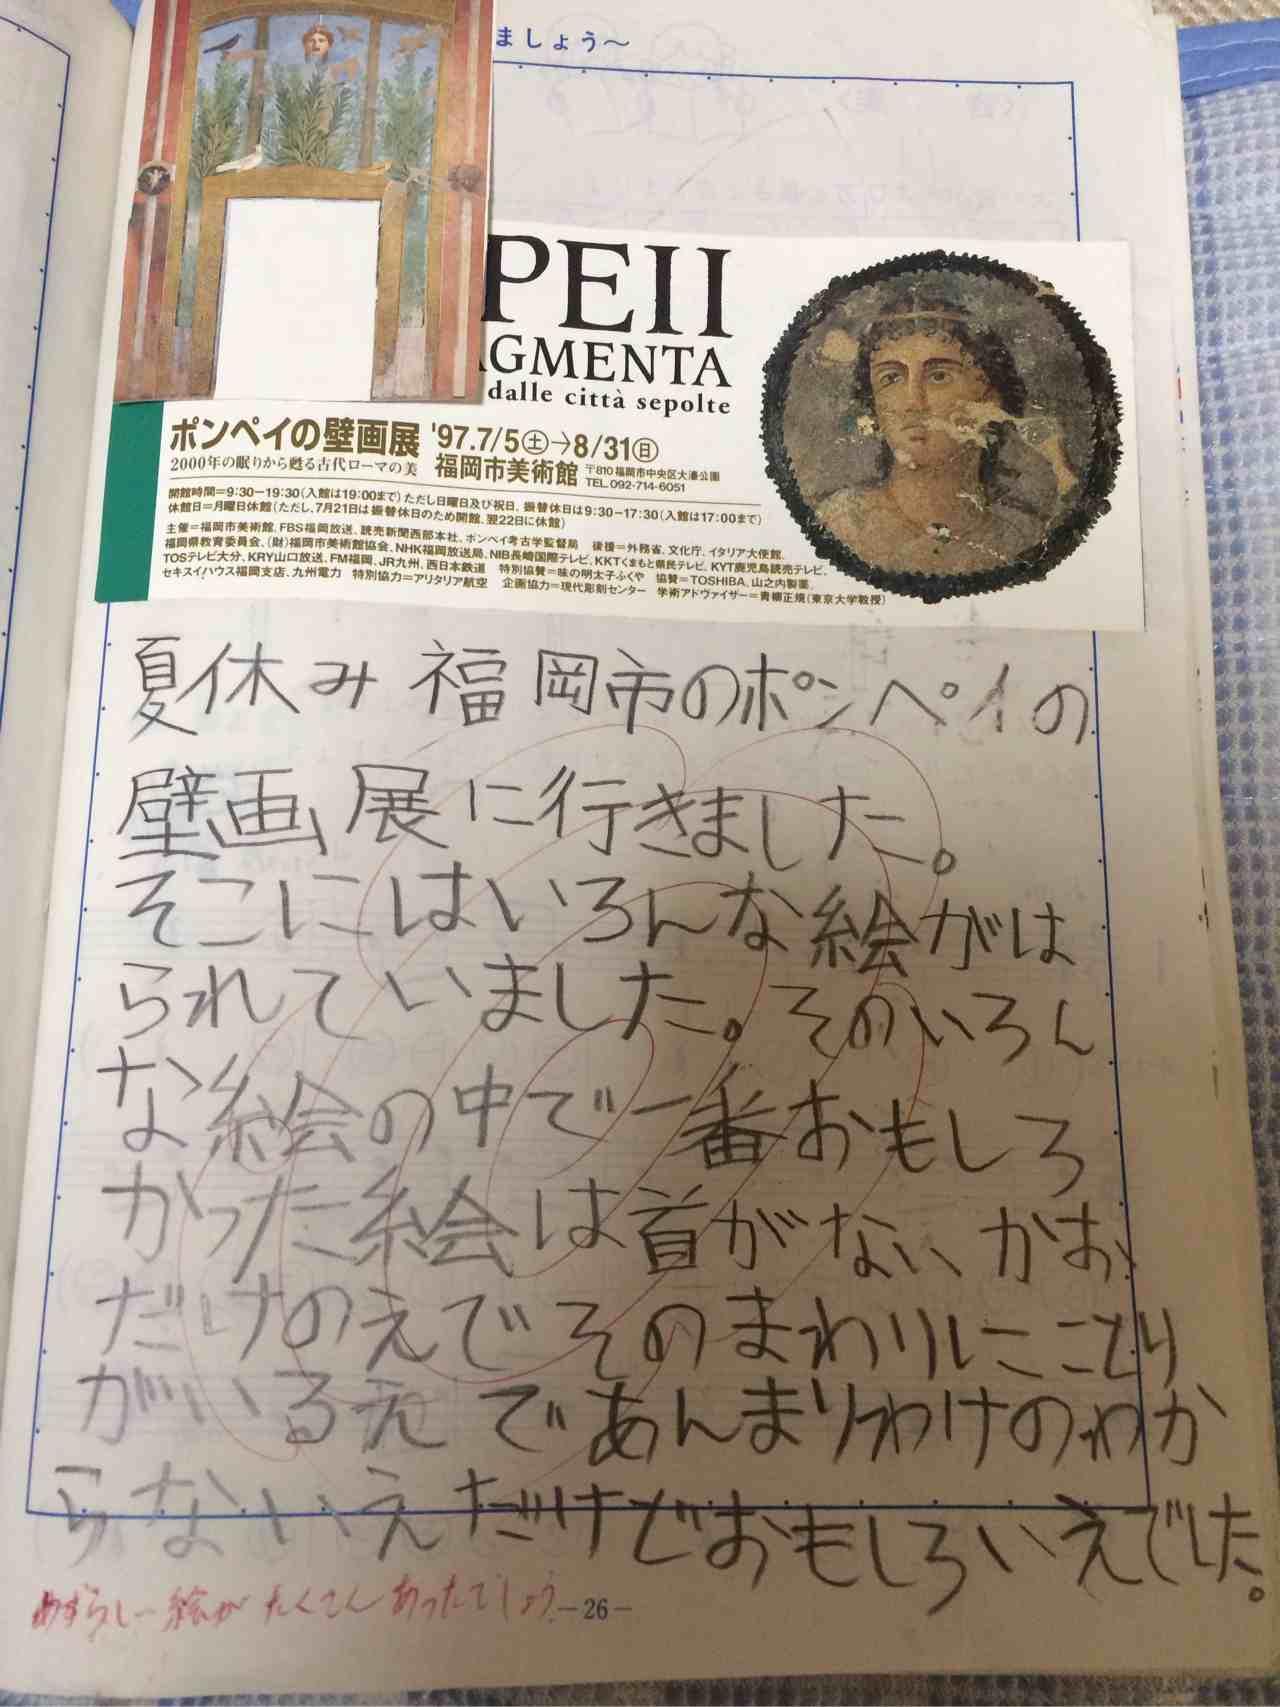 ましょう～
PEII
AGMENTA
dalle città sepolte
ポンペイの壁画展 '97.7/5(土)→8/31(日)
2000年の眠りから甦る古代ローマの美 福岡市美術館 〒810 福岡市中央区大濠公園
TEL.092-714-6051
開館時間=9:30-19:30(入館は19:00まで)ただし日曜日及び祝日、振替休日は9:30-17:30(入館は17:00まで)
休館日=月曜日休館(ただし、7月21日は振替休日のため開館、翌22日に休館)
主催=福岡市美術館、FBS福岡放送、読売新聞西部本社、ポンペイ考古学監督局 後援=外務省、文化庁、イタリア大使館、
福岡県教育委員会、(財)福岡市美術館協会、NHK福岡放送局、NIB長崎国際テレビ、KKTくまもと県民テレビ、KYT鹿児島読売テレビ、
TOSテレビ大分、KRY山口放送、FM福岡、JR九州、西日本鉄道 特別協賛=味の明太子ふくや 協賛=TOSHIBA、山之内製薬、
セキスイハウス福岡支店、九州電力 特別協力=アリタリア航空 企画協力=現代彫刻センター 学術アドヴァイザー=青柳正規(東京大学教授)
夏休み 福岡市のポンペイの
壁画展に行きました。
そこにはいろんな絵がは
られていました。そのいろん
な絵の中で一番おもしろ
かった絵は首がない、かお、
だけのえでそのまわりにことり
がいるえであんまりわけのわか
らないえだけどおもしろいえでした。
めずらしー絵がたくさんあったでしょう
-26-